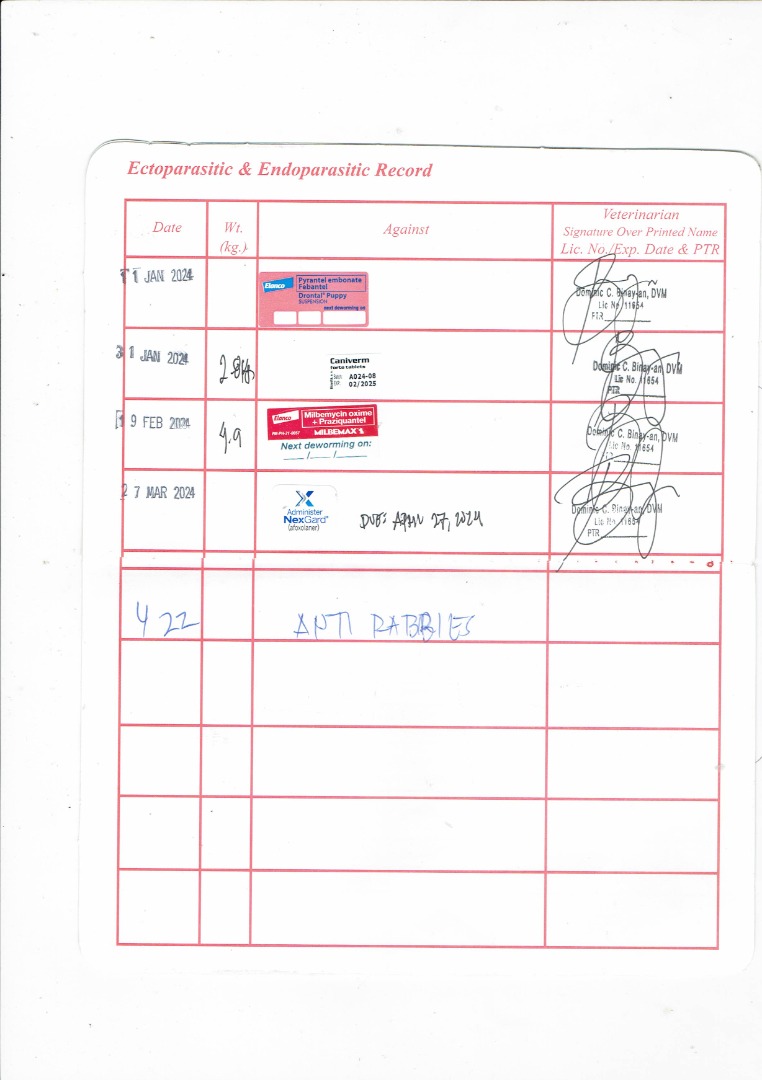 Ectoparasitic & Endoparasitic Record
Date
Wt.
(kg.)
Against
Veterinarian
Signature Over Printed Name
Lic. No./Exp. Date & PTR
11 JAN 2024
Elanco
Pyrantel embonate
Febantel
Drontal® Puppy
SUSPENSION
next deworming on
Dominic C. Binay-an, DVM
Lic No. 11654
PTR
31 JAN 2024
Caniverm
forte tablets
A024-08
02/2025
Dominic C. Binay-an, DVM
Lic No. 11654
PTR
19 FEB 2024
4.9
Elanco
Milbemycin oxime
+ Praziquantel
MILBEMAX
Next deworming on:
__/__/__
Dominic C. Binay-an, DVM
11654
27 MAR 2024
Administer
NexGard®
(afoxolaner)
DUE: APRIL 27, 2024
Dominic C. Binay-an, DVM
Lic No. 11654
PTR
4 22
ANTI RABBIES